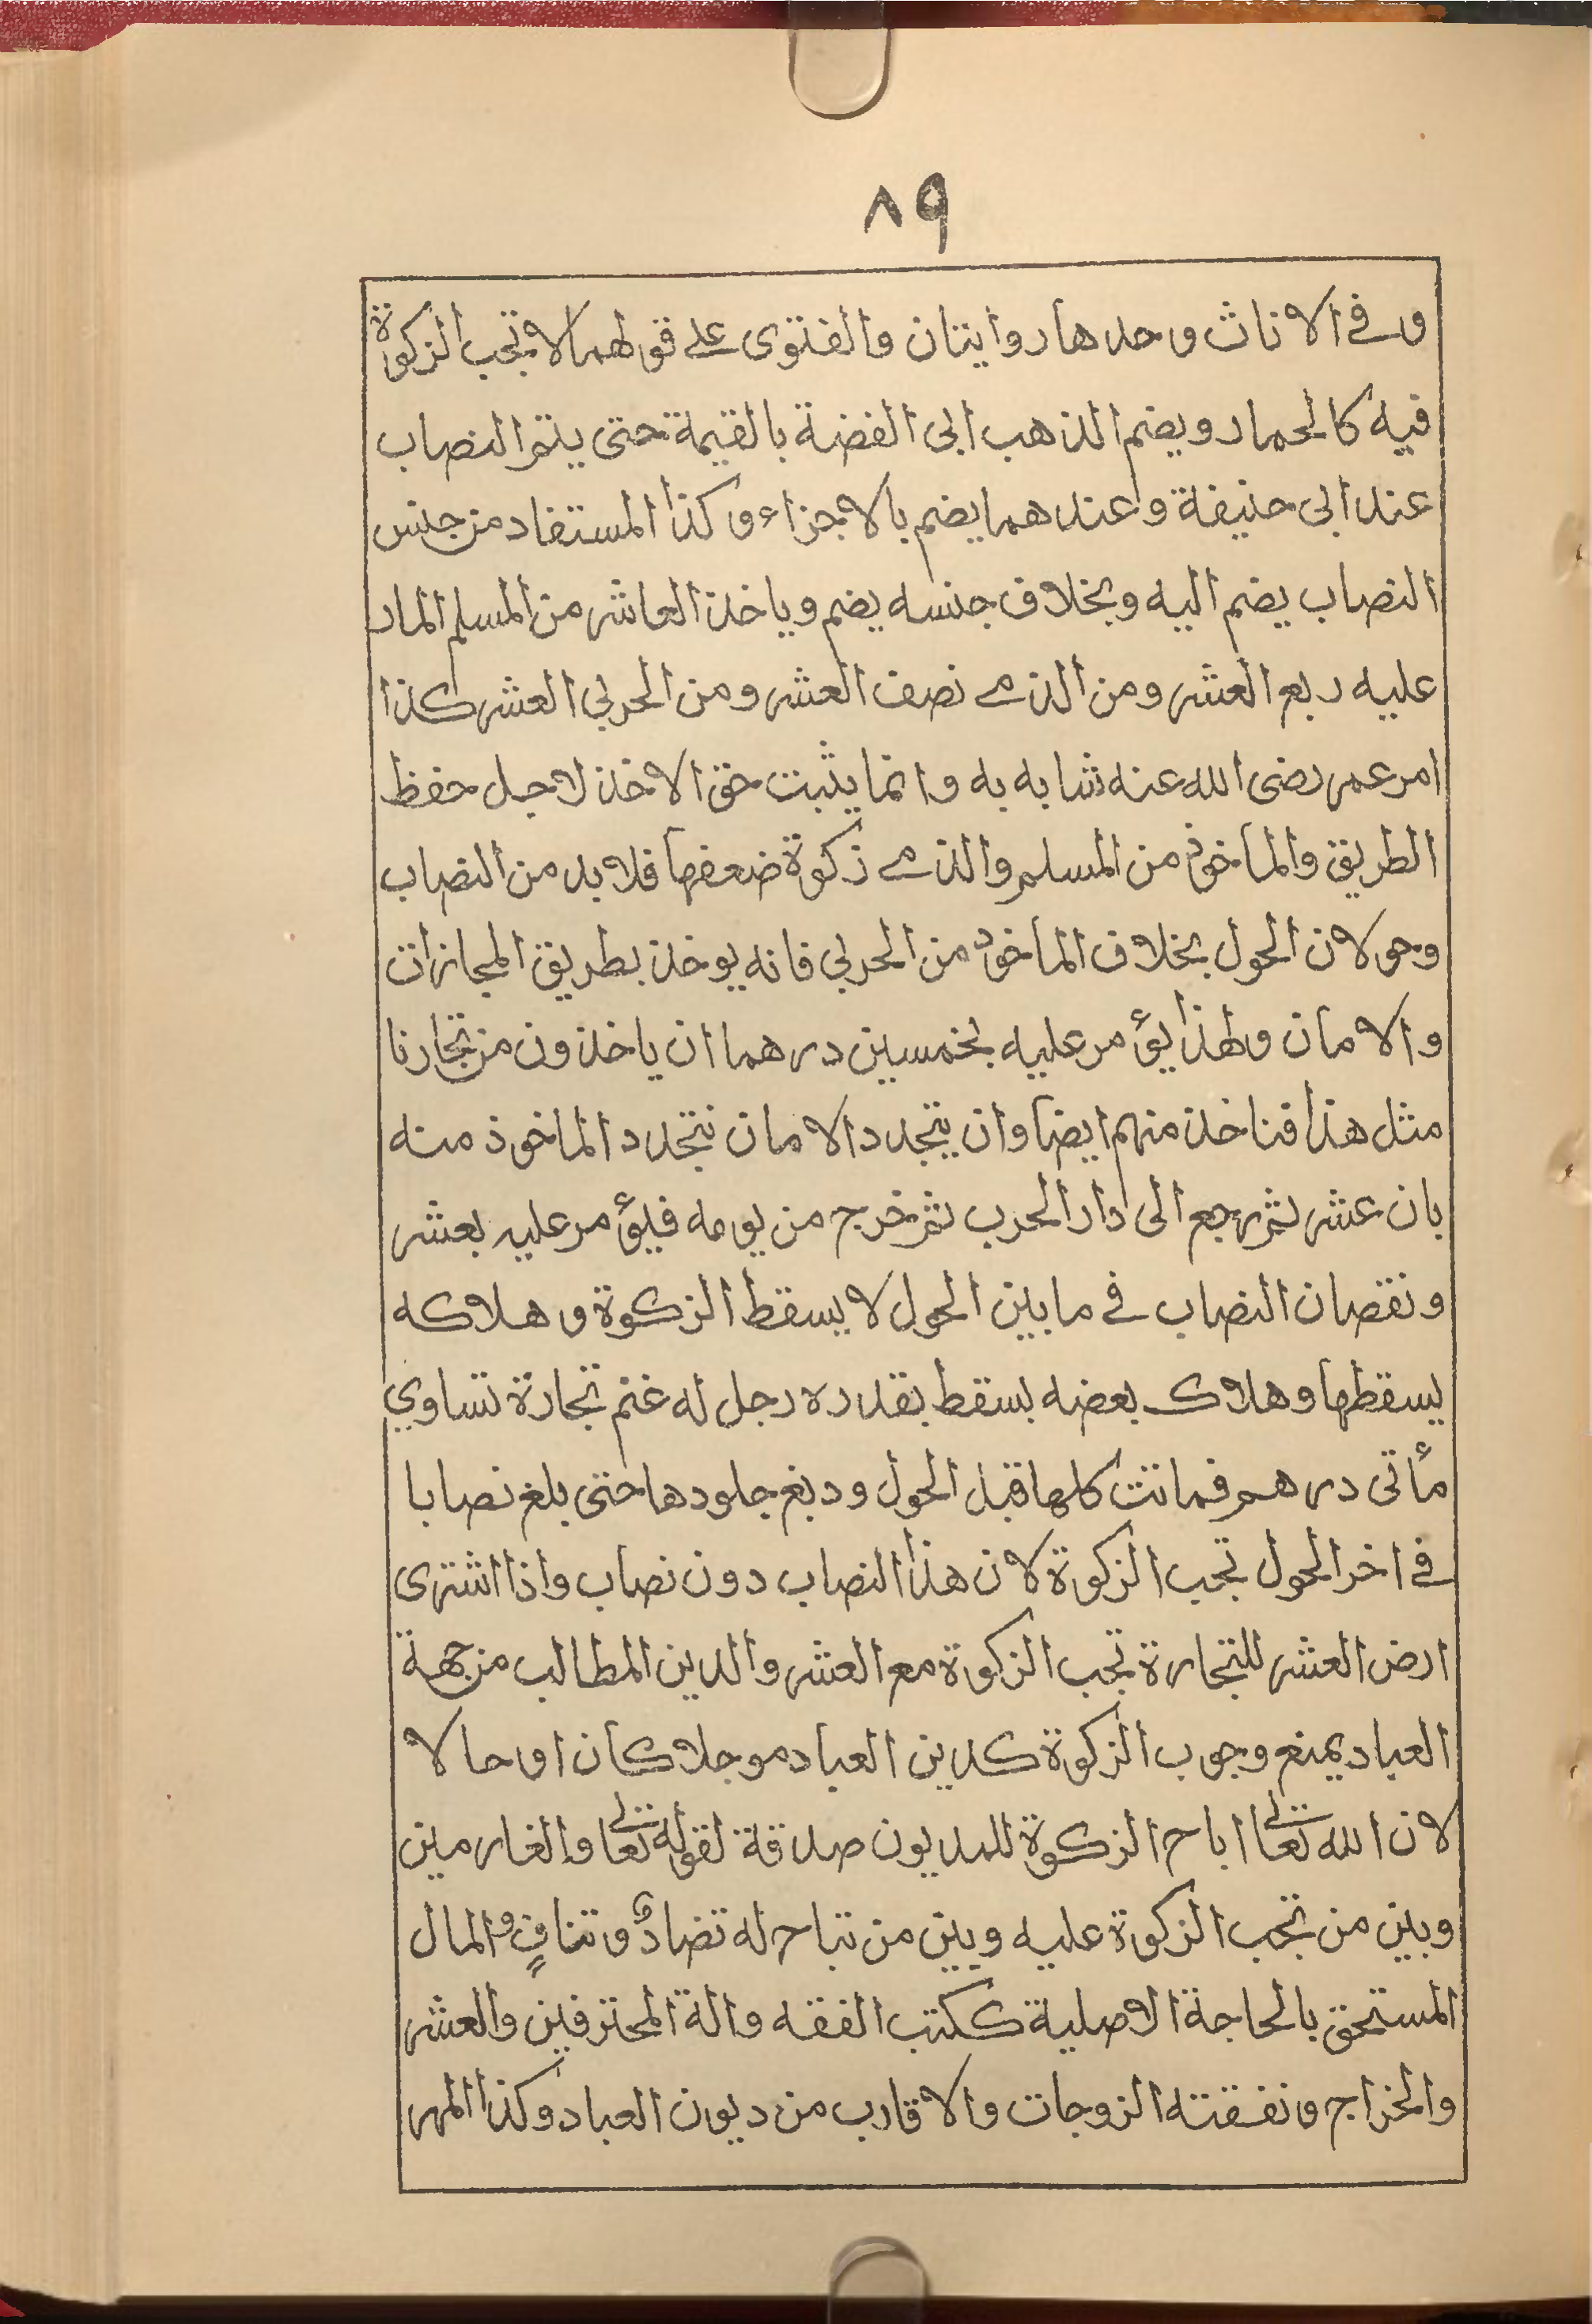 ٨٩
وفى الاناث وحدها روايتان والفتوى على قولهما لا تجب الزكوة
فيه كالحمار ويضم الذهب الى الفضة بالقيمة حتى يتم النصاب
عند ابى حنيفة وعندهما يضم بالاجزاء وكذا المستفاد من جنس
النصاب يضم اليه وبخلاف جنسه يضم وياخذ العاشر من المسلم المار
عليه ربع العشر ومن الذمى نصف العشر ومن الحربي العشر كذا
امر عمر رضى الله عنه شابه به وانما يثبت حق الاخذ لاجل حفظ
الطريق والماخوذ من المسلم والذمى زكوة ضعفها فلا بد من النصاب
وحولان الحول بخلاف الماخوذ من الحربي فانه يوخذ بطريق المجازات
والامان ولهذا يؤمر عليه بخمسين درهما ان ياخذون من تجارنا
مثل هذا فناخذ منهم ايضا وان يتجدد الامان نتجدد الماخوذ منه
بان عشر ثم رجع الى دار الحرب ثم خرج من يومه فيؤمر عليه بعشر
ونقصان النصاب فى مابين الحول لا يسقط الزكوة وهلاكه
يسقطها وهلاك بعضه يسقط بقدره رجل له غنم تجارة تساوي
مأتى درهم فماتت كلها قبل الحول ودبغ جلودها حتى بلغ نصابا
فى اخر الحول تجب الزكوة لان هذا النصاب دون نصاب واذا اشترى
ارض العشر للتجارة تجب الزكوة مع العشر والدين المطالب من جهة
العباد يمنع وجوب الزكوة كدين العباد موجلا كان او حالا
لان الله تعالى اباح الزكوة للمديون صدقة لقوله تعالى والغارمين
وبين من تجب الزكوة عليه وبين من تباح له تضادٌ وتنافٍ والمال
المستحق بالحاجة الاصلية ككتب الفقه والة المحترفين والعشر
والخراج ونفقته الزوجات والاقارب من ديون العباد وكذا المهر